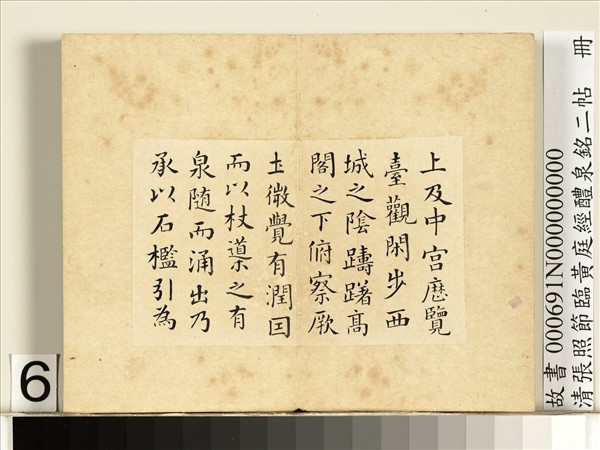 上及中宮歷覽
臺觀閑步西
城之陰躊躇高
閣之下俯察厥
土微覺有潤因
而以杖導之有
泉随而涌出乃
承以石檻引為
故書 000691N000000000
清張照節臨黃庭經醴泉銘二帖 冊
6